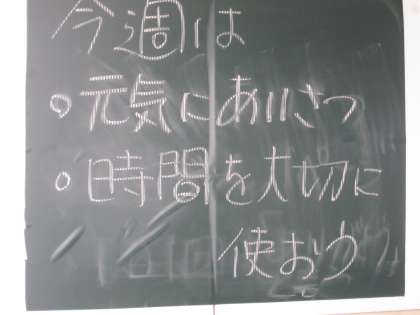 今週は
○元気にあいさつ
○時間を大切に
使おう